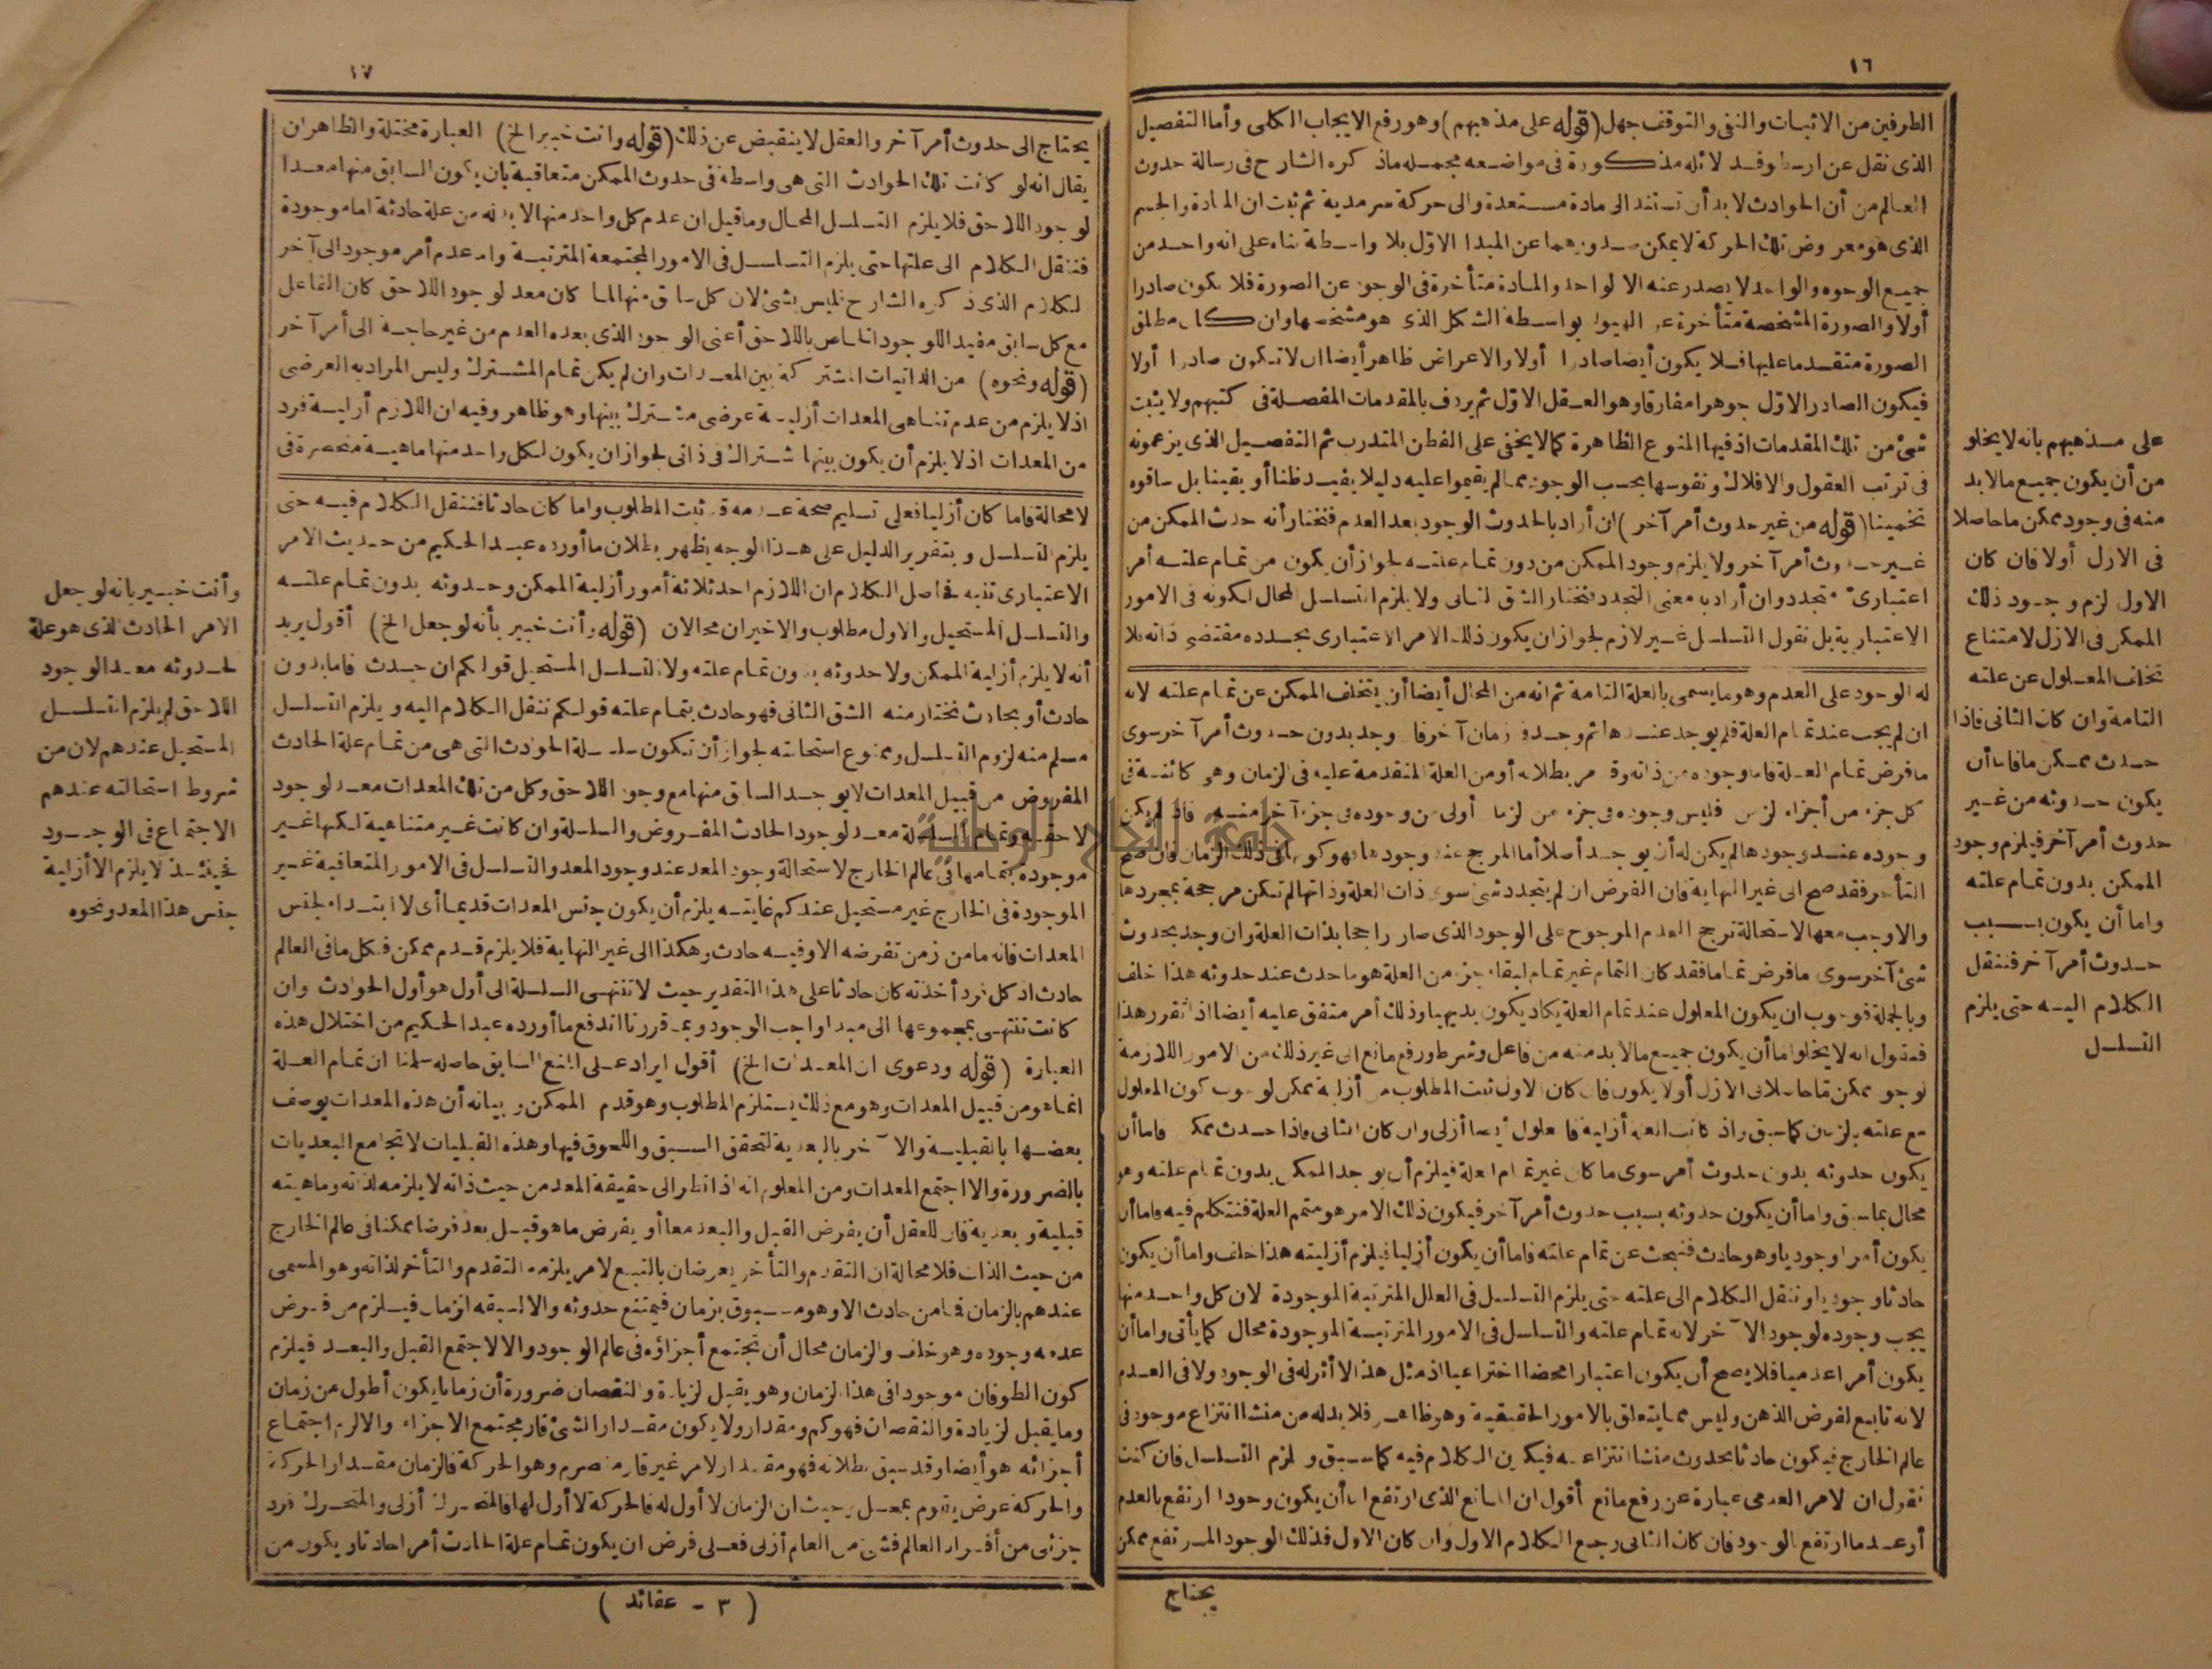 ١٦
الطرفين من الاثبات والنفي والتوقف جهل (قوله على مذهبهم) وهو رفع الايجاب الكلى وأما التفصيل
الذى نقل عن ارسطو فقد لا ئله مذكورة فى مواضعه مجمله ماذ كره الشارح فى رسالة حدوث
العالم من أن الحوادث لابد أن تستند الى مادة مستعدة والى حركة سرمدية ثم ثبت ان المادة والجسم
الذى هو معروض تلك الحركة لا يمكن صدورهما عن المبدا الاول بلا واسطة بناء على انه واحد من
جميع الوجوه والواحد لا يصدر عنه الا لواحد والمادة متأخرة فى الوجود عن الصورة فلا يكون صادرا
أولا والصورة المشخصة متأخرة عن الهيولى بواسطة الشكل الذى هو مشخصها وان كان مطلق
الصورة متقدما عليها فلا يكون أيضا صادرا أولا والاعراض ظاهر أيضا ان لا تكون صادرا أولا
فيكون الصادر الاول جوهرا مفارقا وهو العقل الاول ثم يردف بالمقدمات المفصلة فى كتبهم ولا يثبت
شئ من تلك المقدمات اذ فيها المنوع الظاهرة كما لا يخفى على الفطن المتدرب ثم التفصيل الذى يزعمونه
فى ترتب العقول والافلاك ونفوسها بحسب الوجود مما لم يقيموا عليه دليلا يفيد ظنا أو يقينا بل ساقوه
تخمينا (قوله من غير حدوث أمر آخر) ان أراد بالحدوث الوجود بعد العدم فنختار أنه حدث الممكن من
غير حدوث أمر آخر ولا يلزم وجود الممكن من دون تمام علته لجواز أن يكون من تمام علته أمر
اعتبارى متجدد وان أراد به معنى التجدد فنختار الشق الثانى ولا يلزم التسلسل المحال لكونه فى الامور
الاعتبارية بل نقول التسلسل غير لازم لجواز ان يكون ذلك الامر الاعتبارى تجدده مقتضى ذاته فلا
له الوجود على العدم وهو ما يسمى بالعلة التامة ثم انه من المحال أيضا أن يتخلف الممكن عن تمام علته لانه
ان لم يجب عند تمام العلة فلم يوجد عندها ثم وجد فى زمان آخر فاما وجد بدون حدوث أمر آخر سوى
ما فرض تمام العلة فاما وجوده من ذاته وقد مر بطلانه أو من العلة المتقدمة عليه فى الزمان وهى كائنة فى
كل جزء من أجزاء الزمن فليس وجوده فى جزء من الزمن أولى من وجوده فى جزء آخر منه فاذ لم يكن
وجوده عند وجودها لم يكن له أن يوجد أصلا أما المرجح عند وجودها فهو كونه فى ذلك الزمان فان صح
التأخر فقد صح الى غير النهاية فان الفرض ان لم يتجدد شئ سوى ذات العلة وذاتها لم تكن مرجحة بمجردها
والا وجب معها لاستحالة ترجح العدم المرجوح على الوجود الذى صار راجحا بذات العلة وان وجد بحدوث
شئ آخر سوى ما فرض تماما فقد كان التمام غير تمام لبقاء جزء من العلة هو ما حدث عند حدوثه هذا خلف
وبالجملة فوجوب ان يكون المعلول عند تمام العلة يكاد يكون بديهيا وذلك أمر متفق عليه أيضا اذا تقرر هذا
فنقول انه لا يخلو اما أن يكون جميع ما لابد منه من فاعل وشرط ورفع مانع الى غير ذلك من الامور اللازمة
لوجود ممكن ما حاصلا فى الازل أولا يكون فان كان الاول ثبت المطلوب من أزلية ممكن لوجوب كون المعلول
مع علته بالزمان كما سبق واذ كانت العلة أزلية فالمعلول أيضا أزلى وان كان الثانى فاذا حدث ممكن فاما أن
يكون حدوثه بدون حدوث أمر سوى ما كان غير تمام العلة فيلزم أن يوجد الممكن بدون تمام علته وهو
محال بما سبق واما أن يكون حدوثه بسبب حدوث أمر آخر فيكون ذلك الامر هو متمم العلة فنتكلم فيه فاما أن
يكون أمرا وجوديا وهو حادث فنبحث عن تمام علته فاما أن يكون أزليا فيلزم أزليته هذا خلف واما أن يكون
حادثا وجوديا وننقل الكلام الى علته حتى يلزم التسلسل فى العلل المترتبة الموجودة لان كل واحد منها
يجب وجوده لوجود الآخر لانه تمام علته والتسلسل فى الامور المترتبة الموجودة محال كما يأتى واما أن
يكون أمرا عدميا فلا يصح أن يكون اعتبارا محضا اختراعيا اذ مثل هذا لا أثر له فى الوجود ولا فى العدم
لانه تابع لفرض الذهن وليس مما يتعلق بالامور الحقيقية وهو ظاهر فلا بد له من منشا انتزاع موجود فى
عالم الخارج فيكون حادثا بحدوث منشا انتزاعه فيكون الكلام فيه كما سبق ولزم التسلسل فان كنت
تقول ان الامر العدمى عبارة عن رفع مانع أقول ان المانع الذى ارتفع اما أن يكون وجودا ارتفع بالعدم
أو عدما ارتفع الوجود فان كان الثانى رجع الكلام الاول وان كان الاول فذلك الوجود المرتفع ممكن
يحتاج
على مذهبهم بانه لا يخلو
من أن يكون جميع ما لابد
منه فى وجود ممكن ما حاصلا
فى الازل أولا فان كان
الاول لزم وجود ذلك
الممكن فى الازل لامتناع
تخلف المعلول عن علته
التامة وان كان الثانى فاذا
حدث ممكن ما فاما أن
يكون حدوثه من غير
حدوث أمر آخر فيلزم وجود
الممكن بدون تمام علته
واما أن يكون بسبب
حدوث أمر آخر فننقل
الكلام اليه حتى يلزم
التسلسل
١٧
يحتاج الى حدوث أمر آخر والعقل لا ينقبض عن ذلك (قوله وانت خبير الخ) العبارة مختلة والظاهر ان
يقال انه لو كانت تلك الحوادث التى هى واسطة فى حدوث الممكن متعاقبة بان يكون السابق منها معدا
لوجود اللاحق فلا يلزم التسلسل المحال وما قيل ان عدم كل واحد منها لابد له من علة حادثة اما موجودة
فننقل الكلام الى علتها حتى يلزم التسلسل فى الامور المجتمعة المترتبة واما عدم أمر موجود الى آخر
الكلام الذى ذكره الشارح فليس بشئ لان كل سابق منها لما كان معد لوجود اللاحق كان الفاعل
مع كل سابق مفيد اللوجود الخاص باللاحق أعنى الوجود الذى بعده العدم من غير حاجة الى أمر آخر
(قوله ونحوه) من الذاتيات المشتركة بين المعدات وان لم يكن تمام المشترك وليس المراد به العرضى
اذ لا يلزم من عدم تناهى المعدات أزلية عرضى مشترك بينها وهو ظاهر وفيه ان اللازم أزلية فرد
من المعدات اذ لا يلزم أن يكون بينها اشتراك فى ذاتى لجواز ان يكون لكل واحد منها ماهية منحصرة فى
لا محالة فاما كان أزليا فعلى تسليم صحة عدمه قد ثبت المطلوب واما كان حادثا فننقل الكلام فيه حتى
يلزم التسلسل وبتقرير الدليل على هذا الوجه يظهر بطلان ما أورده عبد الحكيم من حديث الامر
الاعتبارى تنبه فاصل الكلام ان اللازم احد ثلاثة أمور أزلية الممكن وحدوثه بدون تمام علته
والتسلسل المستحيل والاول مطلوب والاخيران محالان (قوله وأنت خبير بأنه لو جعل الخ) أقول يريد
أنه لا يلزم أزلية الممكن ولا حدوثه بدون تمام علته ولا التسلسل المستحيل قولكم ان حدث فاما بدون
حادث أو بحادث نختار منه الشق الثانى فهو حادث بتمام علته قولكم ننقل الكلام اليه ويلزم التسلسل
مسلم منه لزوم التسلسل وممنوع استحالته لجواز أن تكون سلسلة الحوادث التى هى من تمام علة الحادث
المفروض من قبيل المعدات لا يوجد السابق منها مع وجود اللاحق وكل من تلك المعدات معد لوجود
لاحقه وتمام السلسلة معد لوجود الحادث المفروض والسلسلة وان كانت غير متناهية لكنها غير
موجودة بتمامها فى عالم الخارج لاستحالة وجود المعد عند وجود المعد والتسلسل فى الامور المتعاقبة غير
الموجودة فى الخارج غير مستحيل عندكم غايته يلزم أن يكون جنس المعدات قديما أى لا ابتداء لجنس
المعدات فانه ما من زمن تفرضه الا وفيه حادث وهكذا الى غير النهاية فلا يلزم قدم ممكن فكل ما فى العالم
حادث اذ كل فرد أخذته كان حادثا على هذا التقدير حيث لا تنتهى السلسلة الى أول هو أول الحوادث وان
كانت تنتهى بمجموعها الى مبدا واجب الوجود وبما قررنا اندفع ما أورده عبد الحكيم من اختلال هذه
العبارة (قوله ودعوى ان المعدات الخ) أقول ايراد على المنع السابق حاصله سلمنا ان تمام العلة
انما هو من قبيل المعدات وهو مع ذلك يستلزم المطلوب وهو قدم الممكن وبيانه أن هذه المعدات يوصف
بعضها بالقبلية والآخر بالبعدية لتحقق السبق واللحوق فيها وهذه القبليات لا تجامع البعديات
بالضرورة والا اجتمع المعدات ومن المعلوم انه اذا نظر الى حقيقة المعد من حيث ذاته لا يلزمه لذاته وماهيته
قبلية وبعدية فان للعقل أن يفرض القبل والبعد معا أو يفرض ما هو قبل بعد فرضا ممكنا فى عالم الخارج
من حيث الذات فلا محالة ان التقدم والتأخر يعرضان بالتبع لامر يلزمه التقدم والتأخر لذاته وهو المسمى
عندهم بالزمان فما من حادث الا وهو مسبوق بزمان فيمتنع حدوثه والا لسبقه الزمان فيلزم من فرض
عدمه وجوده وهو خلف والزمان محال أن تجتمع أجزاؤه فى عالم الوجود والا لاجتمع القبل والبعد فيلزم
كون الطوفان موجودا فى هذا الزمان وهو يقبل الزيادة والنقصان ضرورة أن زمانا يكون أطول من زمان
وما يقبل الزيادة والنقصان فهو كم ومقدار ولا يكون مقدار الشئ قار مجتمع الاجزاء والا لزم اجتماع
أجزائه هو أيضا وقد سبق بطلانه فهو مقدار لامر غير قار منصرم وهو الحركة فالزمان مقدار الحركة
والحركة عرض يقوم بمحل وحيث ان الزمان لا أول له فالحركة لا أول لها فالمتحرك أزلى والمتحرك فرد
جزئى من أفراد العالم فشئ من العالم أزلى فعلى فرض ان يكون تمام علة الحادث أمرا حادثا ويكون من
وأنت خبير بانه لو جعل
الامر الحادث الذى هو علة
لحدوثه معد الوجود
اللاحق لم يلزم التسلسل
المستحيل عندهم لان من
شروط استحالته عندهم
الاجتماع فى الوجود
فحينئذ لا يلزم الا أزلية
جنس هذا المعد ونحوه
(٣ - عقائد)
جامعة النجاح الوطنية